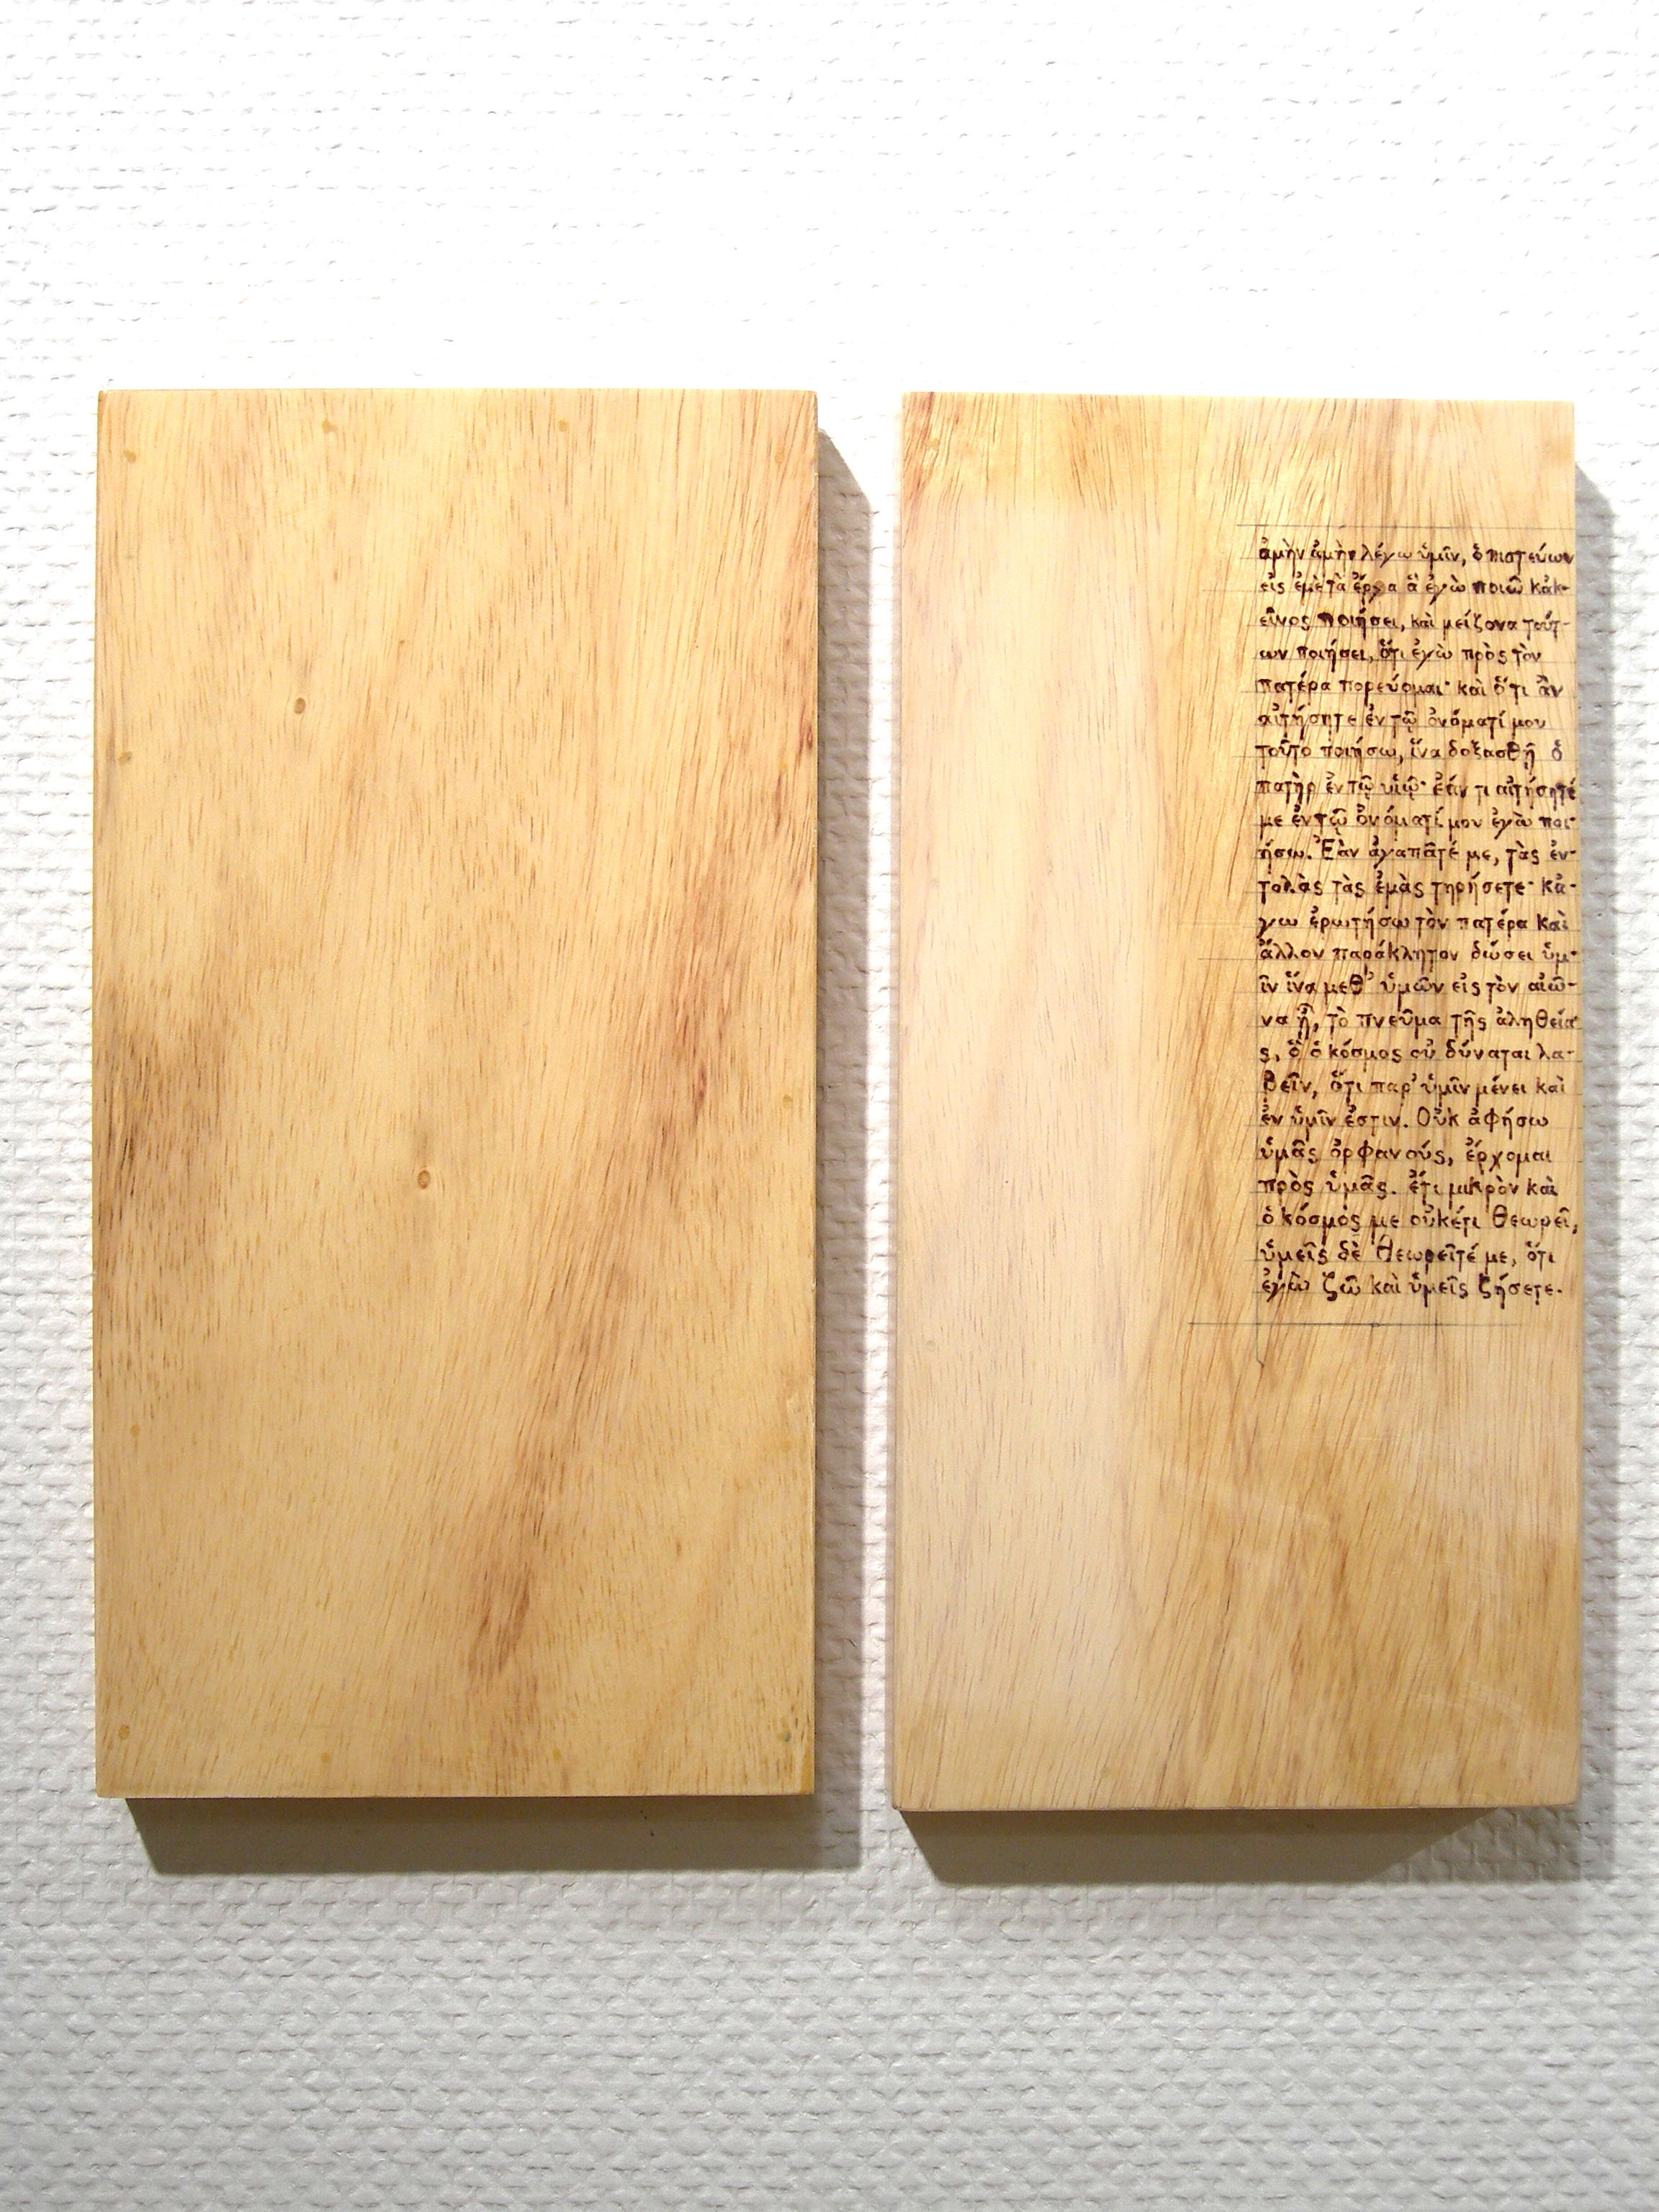 ἀμὴν ἀμὴν λέγω ὑμῖν, ὁ πιστεύων
εἰς ἐμὲ τὰ ἔργα ἃ ἐγὼ ποιῶ κἀκ-
εῖνος ποιήσει, καὶ μείζονα τούτ-
ων ποιήσει, ὅτι ἐγὼ πρὸς τὸν
πατέρα πορεύομαι· καὶ ὅ τι ἂν
αἰτήσητε ἐν τῷ ὀνόματί μου
τοῦτο ποιήσω, ἵνα δοξασθῇ ὁ
πατὴρ ἐν τῷ υἱῷ· ἐάν τι αἰτήσητέ
με ἐν τῷ ὀνόματί μου ἐγὼ ποι-
ήσω. Ἐὰν ἀγαπᾶτέ με, τὰς ἐν-
τολὰς τὰς ἐμὰς τηρήσετε· κἀ-
γω ἐρωτήσω τὸν πατέρα καὶ
ἄλλον παράκλητον δώσει ὑμ-
ῖν ἵνα μεθ' ὑμῶν εἰς τὸν αἰῶ-
να ᾖ, τὸ πνεῦμα τῆς ἀληθεία-
ς, ὃ ὁ κόσμος οὐ δύναται λα-
βεῖν, ὅτι παρ' ὑμῖν μένει καὶ
ἐν ὑμῖν ἐστιν. Οὐκ ἀφήσω
ὑμᾶς ὀρφανούς, ἔρχομαι
πρὸς ὑμᾶς. ἔτι μικρὸν καὶ
ὁ κόσμος με οὐκέτι θεωρεῖ,
ὑμεῖς δὲ θεωρεῖτέ με, ὅτι
ἐγὼ ζῶ καὶ ὑμεῖς ζήσετε.